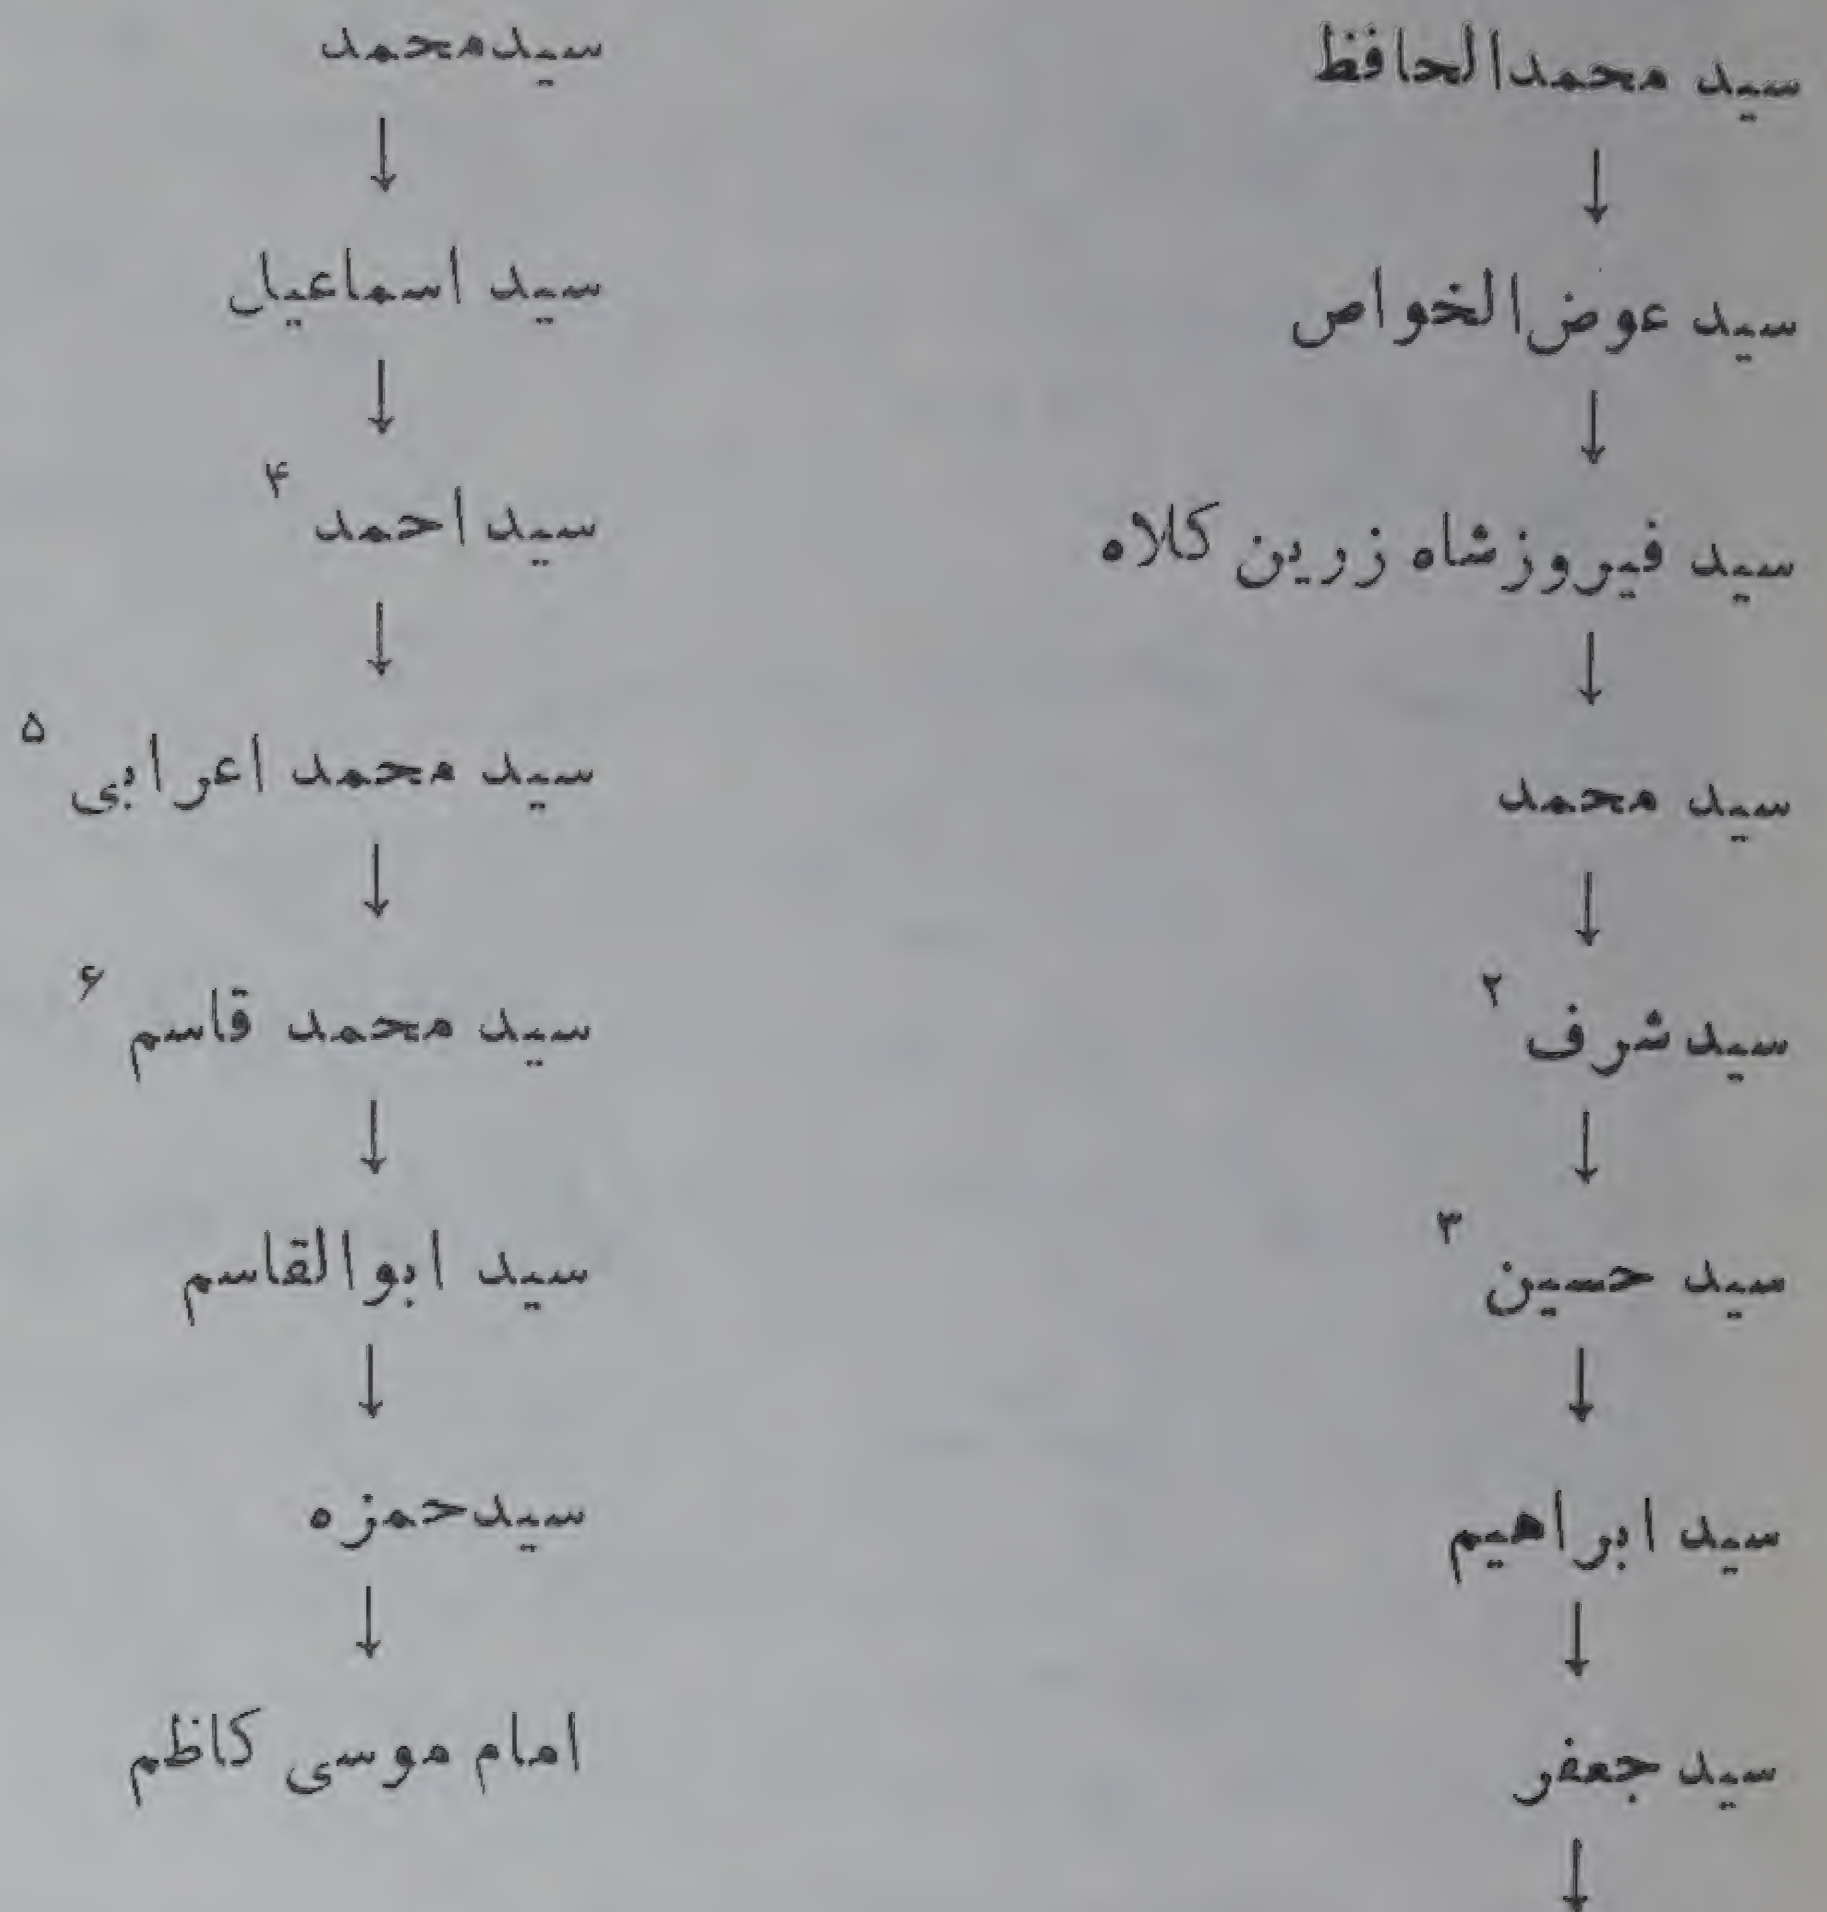 سید محمدالحافظ
↓
سید عوض‌الخواص
↓
سید فیروزشاه زرین کلاه
↓
سید محمد
↓
سیدشرف ۲
↓
سید حسین ۳
↓
سید ابراهیم
↓
سید جعفر
↓
سیدمحمد
↓
سید اسماعیل
↓
سید احمد ۴
↓
سید محمد اعرابی ۵
↓
سید محمد قاسم ۶
↓
سید ابوالقاسم
↓
سیدحمزه
↓
امام موسی کاظم